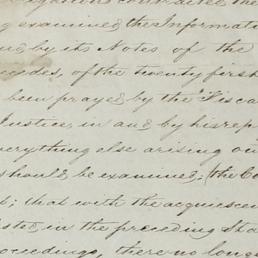 examined the Informati
and by its Notes of the
ceedes, of the twenty first
been prayed by the Fisca
Justice, in and by his rep
everything else arising ou
should be examined; (the Co
; that with the acquiescen
sted in the preceding Sta
oceedings, there no longe